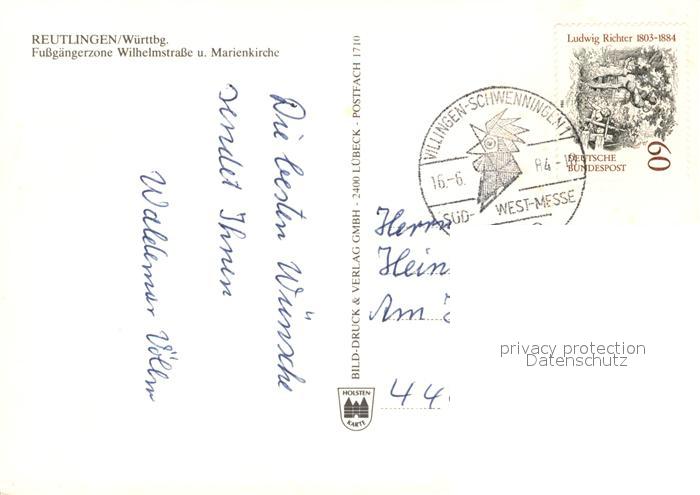 REUTLINGEN/Württbg.
Fußgängerzone Wilhelmstraße u. Marienkirche
Die besten Wünsche
sendet Ihnen
Waldemar
BILD-DRUCK & VERLAG GMBH - 2400 LÜBECK - POSTFACH 1710
HOLSTEN
KARTE
Ludwig Richter 1803-1884
DEUTSCHE
BUNDESPOST
60
VILLINGEN-SCHWENNINGEN 1
16.-6.
84-
SÜD- WEST-MESSE
Herrn
Hein
Am
44
privacy protection
Datenschutz